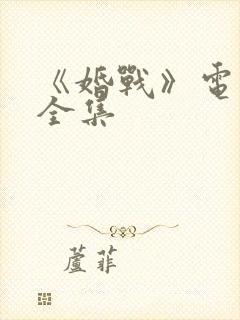 《婚戰》電
全集
蘆菲